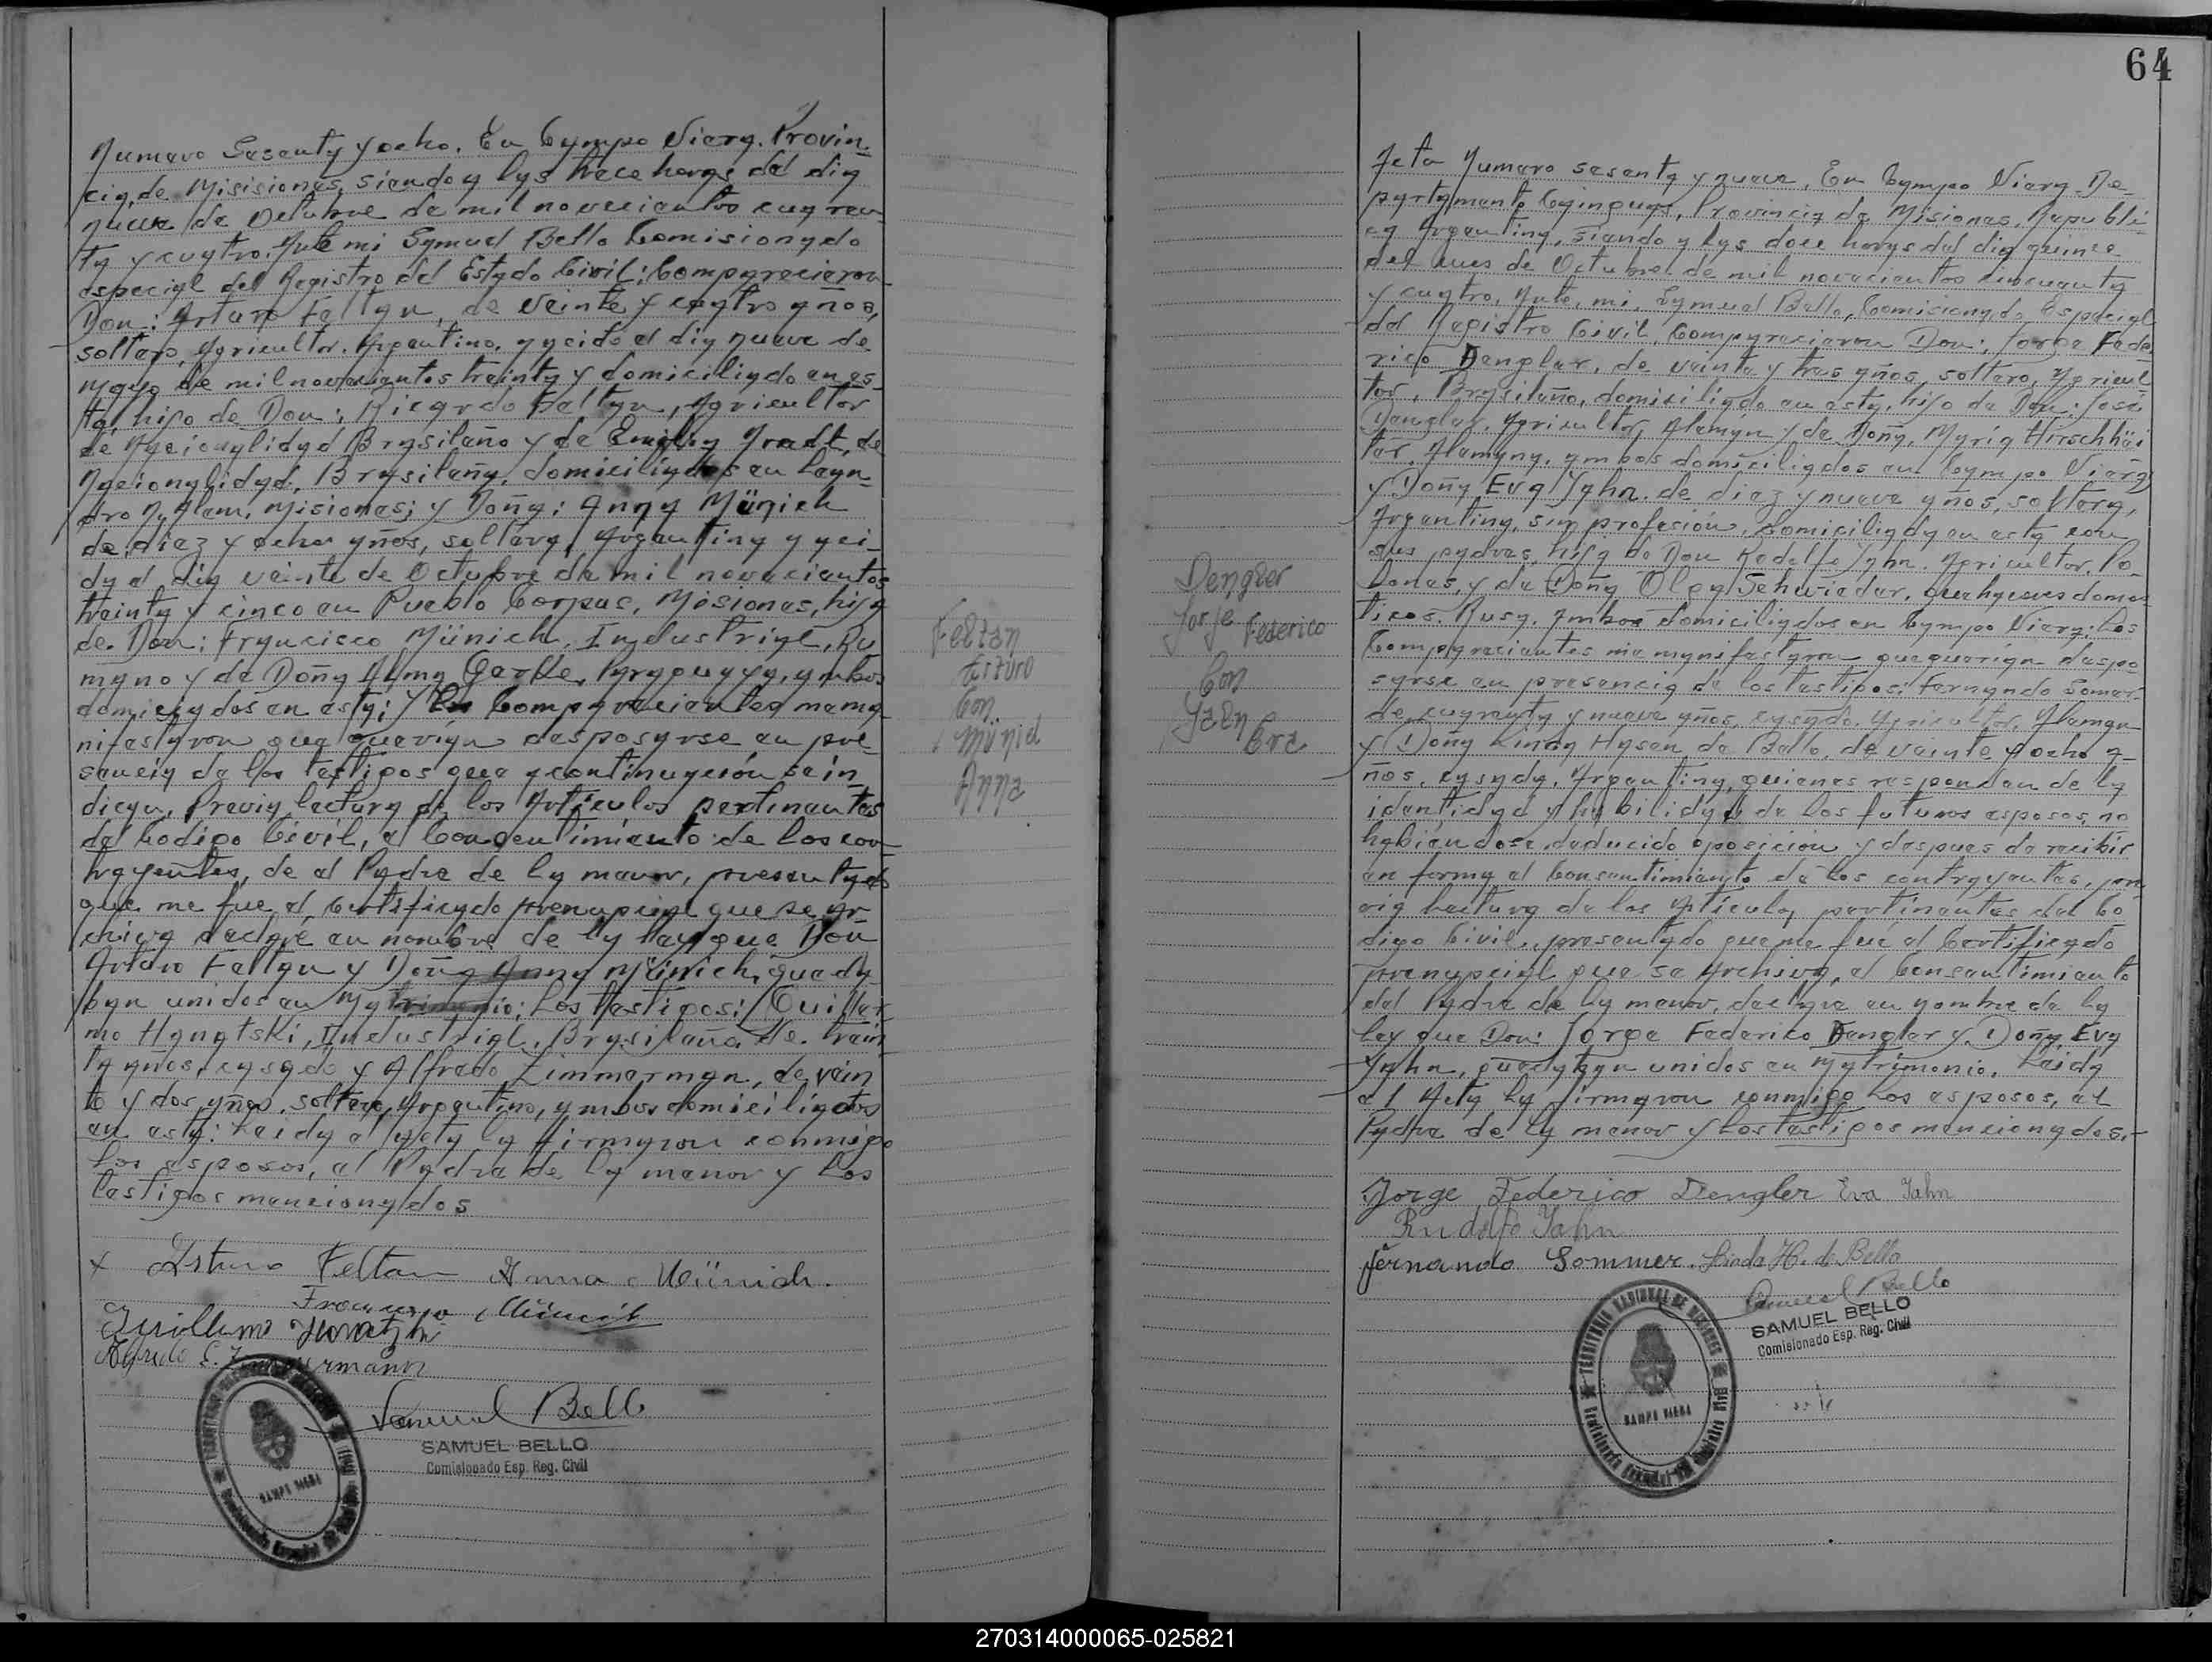 Numero Sesenta y ocho. En Campo Viera. Provin-
cia, de Misisiones, siendo a las trece horas del dia
nueve de Octubre de mil novecientos cuaren-
ta y cuatro. Ante mi Samuel Bello Comisionado
especial del Registro del Estado Civil: Comparecieron
Don: Arturo Feltan, de veinte y cuatro años,
soltero, Agricultor. Argentino, nacido el dia nueve de
Mayo de mil novecientos treinta y domiciliado en es-
ta, hijo de Don: Ricardo Feltan, Agricultor
de Nacionalidad Brasilaño y de Emilia de
Nacionalidad, Brasilaña, domiciliados en Lean-
dro N. Alem, Misiones; y Doña: Anna Münich
de diez y ocho años, soltera, Argentina naci-
da el dia veinte de Octubre de mil novecientos
treinta y cinco en Pueblo Corpus, Misiones, hija
de Don: Francisco Münich, Industrial, Ru
mano y de Doña Alma Paraguaya, ambos
domiciados en esta; Y los Comparecientes mema-
nifestaron que querian desposarse en pre-
sencia de los testigos que a continuación se in-
dican, Previa lectura de los Articulos pertinentes
del Codigo Civil, el Consentimiento de los con-
trayentes, de el Padre de la menor, presentado
que me fue el Certificado prenupcial que se ar-
chiva declaré en nombre de la Ley que Don
Arturo Feltan y Doña Anna Münich, queda-
ban unidos en Matrimonio; Los testigos: Guiller-
mo Industrial, Brasilaño de trein-
ta años, casado y Alfredo Zimmerman, de vein
te y dos años, soltero, Argentino, ambos domiciliados
en esta: Leida el Acta la firmaron conmigo
Los esposos, el Padre de la menor y Los
testigos mencionados
x Arturo Feltan Anna Münich.
Francisco Münich
Guillermo
Alfredo E. Zimmermann
Samuel Bello
SAMUEL BELLO
Comisionado Esp. Reg. Civil
CAMPO VIERA
Feltan
Arturo
Con
Münich
Anna
64
Dengler
Jorje Federico
Con
Yahn
Eva
Acta Numero sesenta y nueve, En Campo Viera, De-
partamento Cainguas, Provincia de Misiones, Republi-
ca Argentina, siendo a las doce horas del dia quince
del mes de Octubre de mil novecientos cincuenta
y cuatro, Ante, mi, Samuel Bello, Comisionado Especial
del Registro Civil, Comparecieron Don: Jorge Fede
rico Dengler, de veinte y tres años, soltero, Agricul
tor, Brasilaño, domiciliado en esta, hijo de Don: José
Dengler, Agricultor, Aleman y de Doña, Maria Hirschhäi
ter, Alemana, ambos domiciliados en Campo Viera
y Doña Eva Yahn, de diez y nueve años, soltera,
Argentina, sin profesión, domiciliada en esta con
sus padres, hija de Don Rodolfo Yahn, Agricultor, Po-
lones, y de Doña Olga Schwieder, quehaceres domes-
ticos, Rusa, Ambos domiciliados en Campo Viera: Los
Comparecientes me manifestaron que querian despo
sarse en presencia de los testigos: Fernando Somer
de cuarenta y nueve años, casado, Agricultor, Aleman
y Doña Linda Hasen de Bello, de veinte y ocho a-
ños, casada, Argentina, quienes responden de la
identidad y habilidad de los futuros esposos, no
habiendose deducido oposición y despues de recibir
en forma el Consentimiento de los contrayentes, pre
via Lectura de los Articulos pertinentes del Co
digo Civil, presentado que me fué el Certificado
prenupcial que se Archiva, el Consentimiento
del Padre de la menor, declare en nombre de la
Ley que Don: Jorge Federico Dengler y Doña, Eva
Yahn, quedaban unidos en Matrimonio. Leida
el Acta la firmaron conmigo Los esposos, el
Padre de la menor y Los testigos mencionados.-
Jorge Federico Dengler Eva Jahn
Rudolfo Jahn
Fernando Sommer. Linda H. de Bello
Samuel Bello
SAMUEL BELLO
Comisionado Esp. Reg. Civil
CAMPO VIERA
270314000065-025821